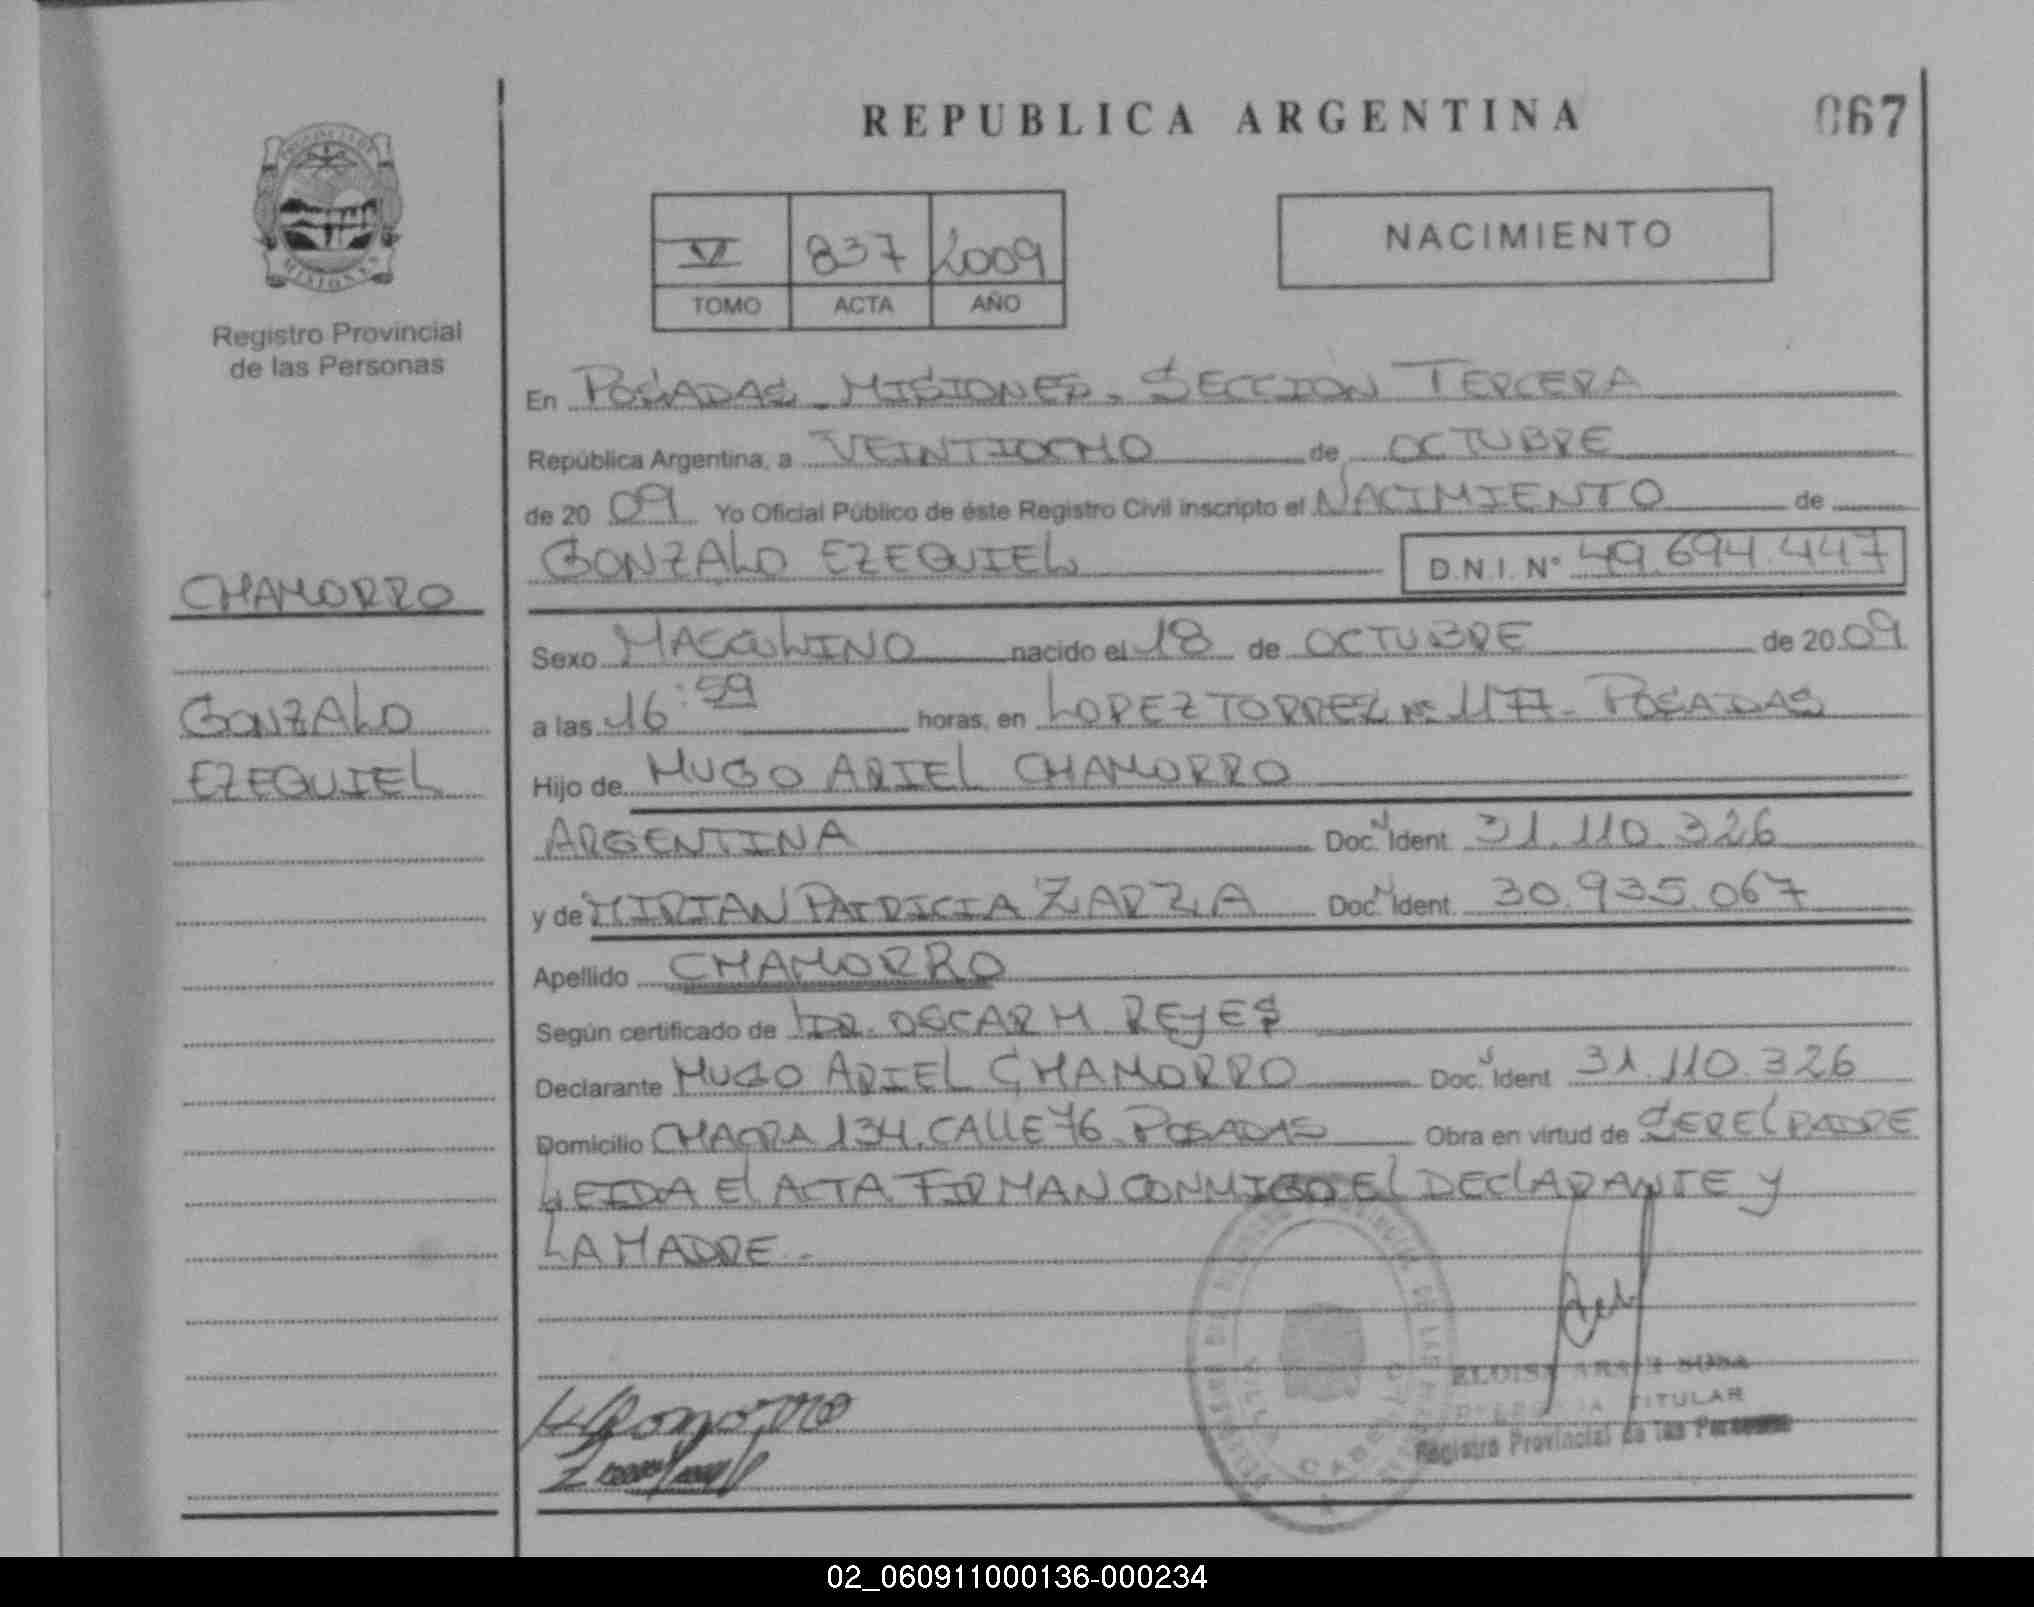 REPUBLICA ARGENTINA
067
V 837 2009
TOMO ACTA AÑO
NACIMIENTO
MISIONES
Registro Provincial
de las Personas
En POSADAS - MISIONES, SECCION TERCERA
República Argentina, a VEINTIOCHO de OCTUBRE
de 20 09 Yo Oficial Público de éste Registro Civil inscripto el NACIMIENTO de
GONZALO EZEQUIEL D.N.I. Nº 49.694.447
CHAMORRO
GONZALO
EZEQUIEL
Sexo MASCULINO nacido el 18 de OCTUBRE de 20 09
a las 16:59 horas, en LOPEZ TORREZ Nº 1177 - POSADAS
Hijo de HUGO ARIEL CHAMORRO
ARGENTINA Doc. Ident. 31.110.326
y de MIRIAN PATRICIA ZARZA Doc. Ident. 30.935.067
Apellido CHAMORRO
Según certificado de DR. OSCAR M. REYES
Declarante HUGO ARIEL CHAMORRO Doc. Ident. 31.110.326
Domicilio CHACRA 134. CALLE 76. POSADAS Obra en virtud de SER EL PADRE
LEIDA El ACTA FIRMAN CONMIGO El DEClARANTE y
LA MADRE.-
TITULAR
Registro Provincial de las Personas
02_060911000136-000234